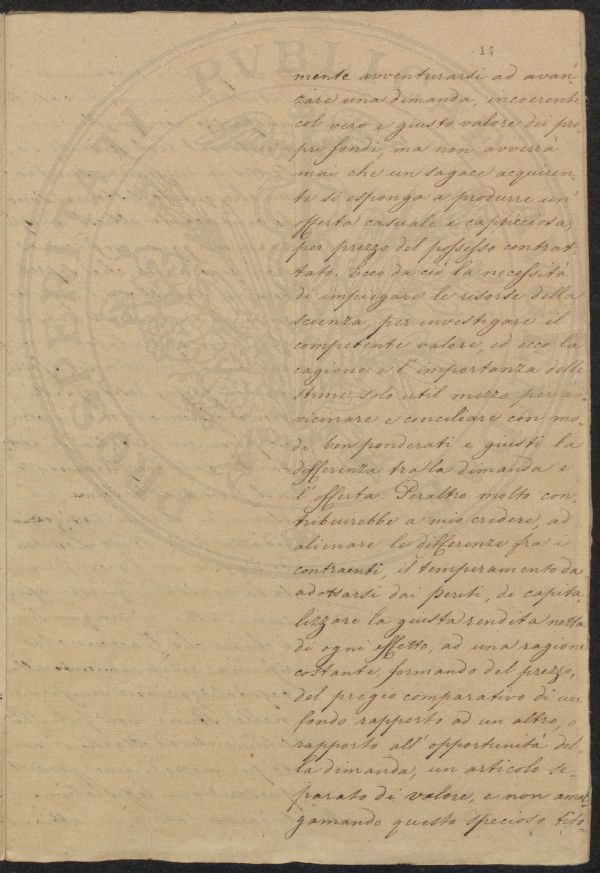 14
mente avventurarsi ad avan-
zare una dimanda, incoerente
col vero e giusto valore dei pro-
pri fondi, ma non avverrà
mai che un sagace acquiren-
te si esponga a produrre un'
offerta casuale e capricciosa,
per prezzo del possesso contrat-
tato. Ecco da ciò la necessità
di impiegare le risorse della
scienza, per investigare il
competente valore, ed ecco la
cagione e l'importanza delle
stime, solo util mezzo per av-
vicinare e conciliare con mo-
di ben ponderati e giusti la
differenza tra la dimanda e
l'offerta. Peraltro molto con-
tribuirebbe a mio credere, ad
alienare le differenze fra i
contraenti, il temperamento da
adottarsi dai periti, di capita-
lizzare la giusta rendita netta
di ogni effetto, ad una ragione
costante, formando del prezzo,
del pregio comparativo di un
fondo rapporto ad un altro, o
rapporto all'opportunità del-
la dimanda, un articolo se-
parato di valore, e non amal-
gamando questo specioso tito-
PROSPERITATI PVBLIC